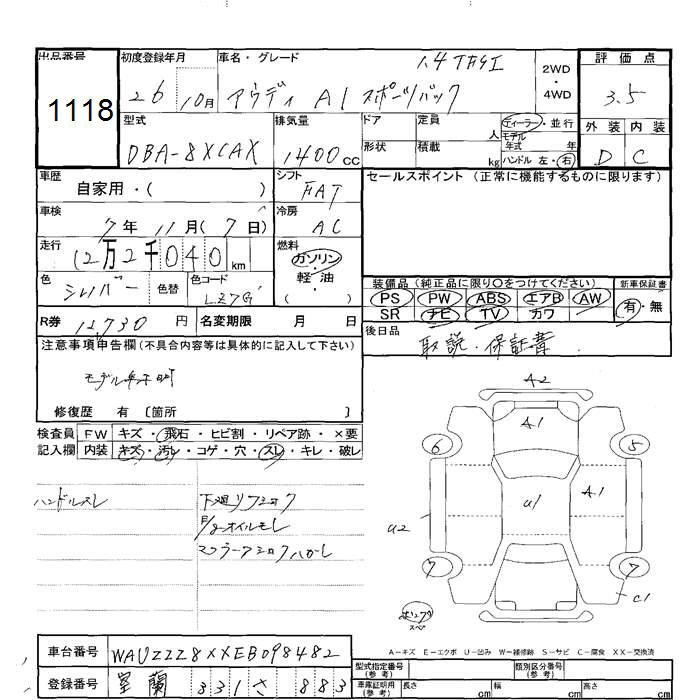 出品番号
1118
初度登録年月
26 10月
車名・グレード
1.4 TFSI
アウディ A1 スポーツバック
2WD
・
4WD
評価点
3.5
外装 内装
D C
型式
DBA-8XCAX
排気量
1400cc
ドア
定員 人
形状
積載 kg
ディーラー・並行
モデル年式 年
ハンドル 左・右
車歴
自家用・( )
シフト
FAT
車検
7年 11月(7日)
冷房
AC
走行
12万2千040km
燃料
ガソリン
・
軽・油
( )
色
シルバー
色替
色コード
LZ7G
R券
12,730円
名変期限 月 日
セールスポイント (正常に機能するものに限ります)
装備品(純正品に限り○をつけてください)
PS PW ABS エアB AW
SR ナビ TV カワ
新車保証書
有・無
後日品
取説・保証書
注意事項申告欄(不具合内容等は具体的に記入して下さい)
モデル年不明
修復歴 有 〔箇所 〕
検査員記入欄
FW キズ・飛石・ヒビ割・リペア跡・×要
内装 キズ・汚レ・コゲ・穴・スレ・キレ・破レ
ハンドルスレ
下廻りフショク
E/gオイルモレ
マフラーフショクハガレ
A2
A1
6
5
U1
A1
U2
7
7
C1
スペア
A-キズ E-エクボ U-凹み W-補修跡 S-サビ C-腐食 XX-交換済
車台番号
WAUZZZ8XXEB098482
登録番号
室蘭 331 さ 883
型式指定番号
(参考)
類別区分番号
(参考)
車庫証明用
(参考)
長さ cm
幅 cm
高さ cm